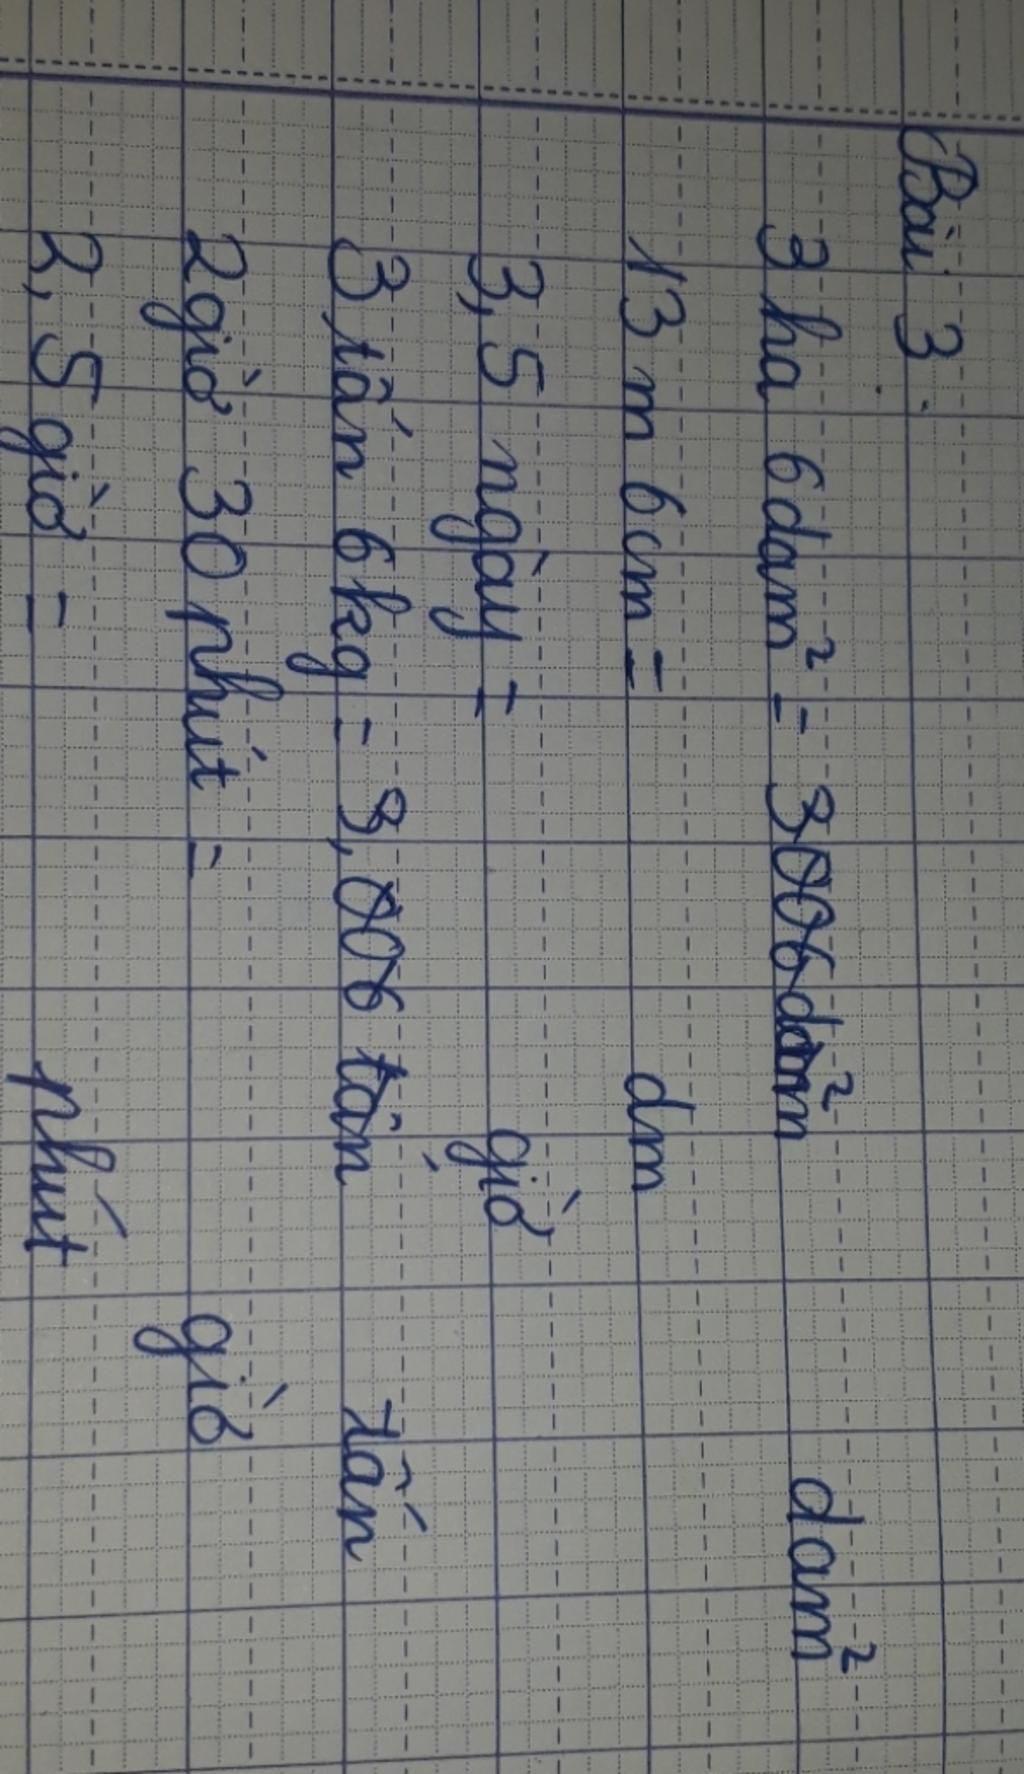 Bài 3.
3 ha 6dam² = 3006dam² dam²
13 m 6cm = dm
3,5 ngày = giờ
3 tấn 6kg = 3,006 tấn tấn
2giờ 30 phút = giờ
2,5 giờ = phút